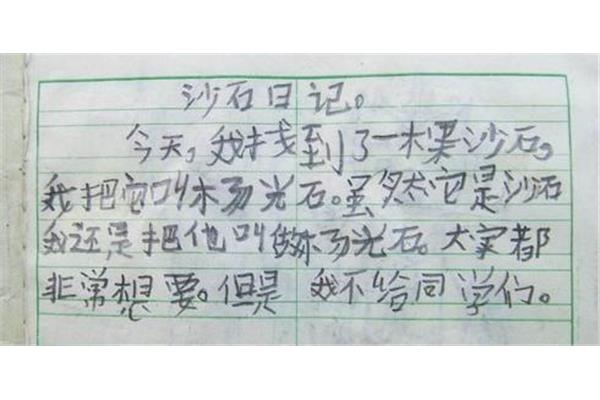 沙石日记。
今天,我找到了一棵沙石。
我把它叫木场光石。虽然它是沙石
我还是把他叫做木场光石。大家都
非常想要。但是我不给同学们。